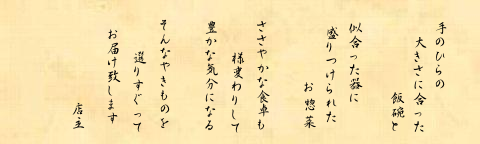 手のひらの
大きさに合った
飯碗と
似合った器に
盛りつけられた
お惣菜
ささやかな食卓も
様変わりして
豊かな気分になる
そんなやきものを
選りすぐって
お届け致します
店主